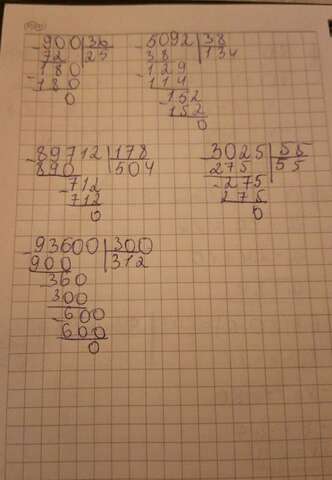 900 | 36
72 | 25
180
180
0
5092 | 38
38 | 134
129
114
152
152
0
89712 | 178
890 | 504
712
712
0
3025 | 55
275 | 55
275
275
0
93600 | 300
900 | 312
360
300
600
600
0